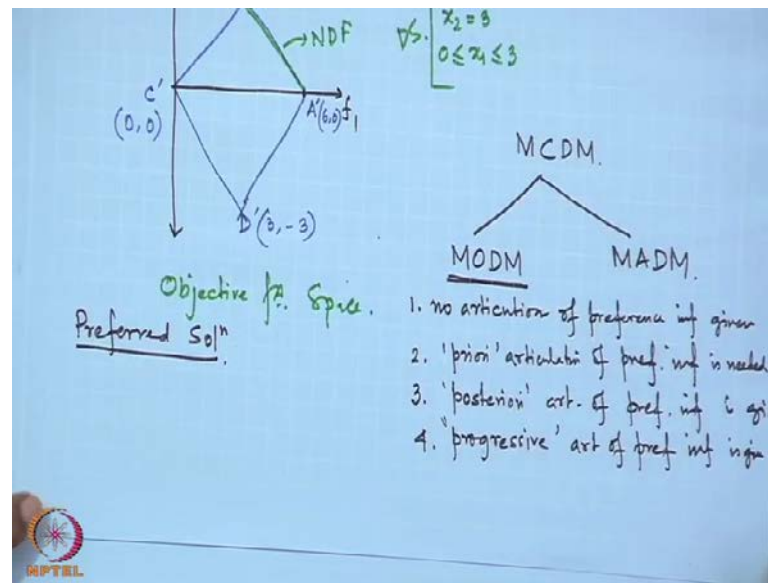 →NDF
x₂ = 3
0 ≤ x₁ ≤ 3
C'
(0,0)
A'(6,0) f₁
D'(3,-3)
MCDM.
MODM MADM.
Objective fn. Space.
Preferred Solⁿ.
1. no articution of preference inf given
2. 'priori' articulatin of pref. inf is needed
3. 'posteriori' art. of pref. inf is gi
4. 'progressive' art of pref inf is give
NPTEL